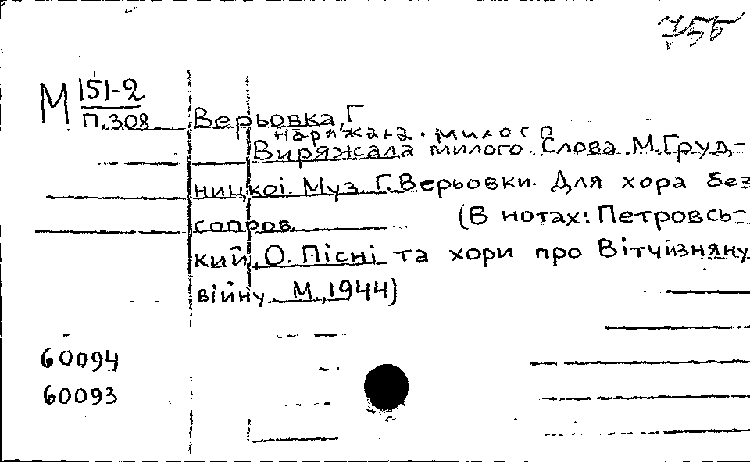 755
М 151-2
П.308
Верьовка, Г
наряжала милого
Виряжала милого. Слова М. Груд-
ницкої. Муз. Г. Верьовки. Для хора без
сопров. (В нотах: Петровсь-
кий, О. Пісні та хори про Вітчизняну
війну. М., 1944)
60094
60093